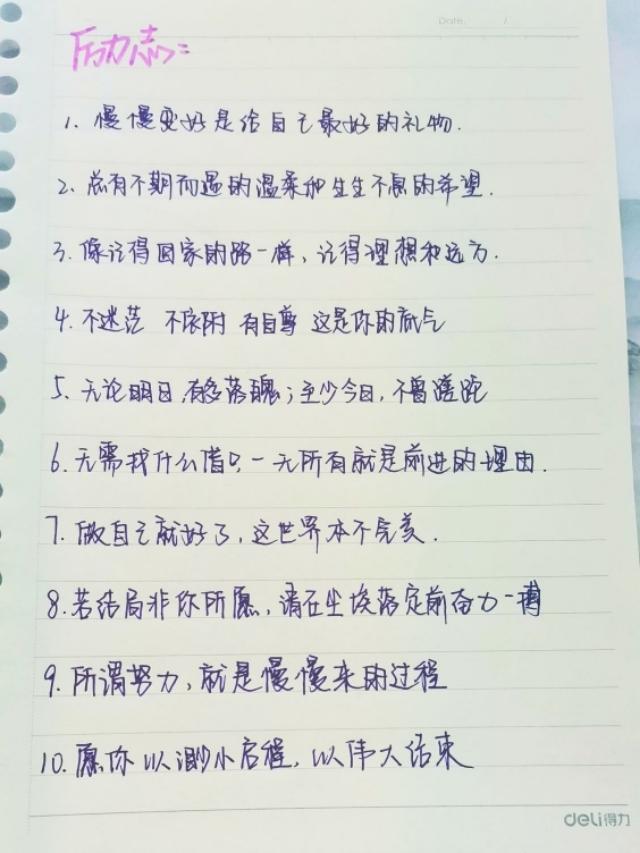 Date. /
励志:
1. 慢慢变好是给自己最好的礼物.
2. 总有不期而遇的温柔和生生不息的希望.
3. 像记得回家的路一样, 记得理想和远方.
4. 不迷茫 不依附 有自尊 这是你的底气
5. 无论明日,有多落魄;至少今日,不曾蹉跎
6. 无需找什么借口一无所有就是前进的理由.
7. 做自己就好了, 这世界本不完美.
8. 若结局非你所愿, 请在尘埃落定前奋力一搏
9. 所谓努力, 就是慢慢来的过程
10. 愿你以渺小启程, 以伟大结束
deli得力